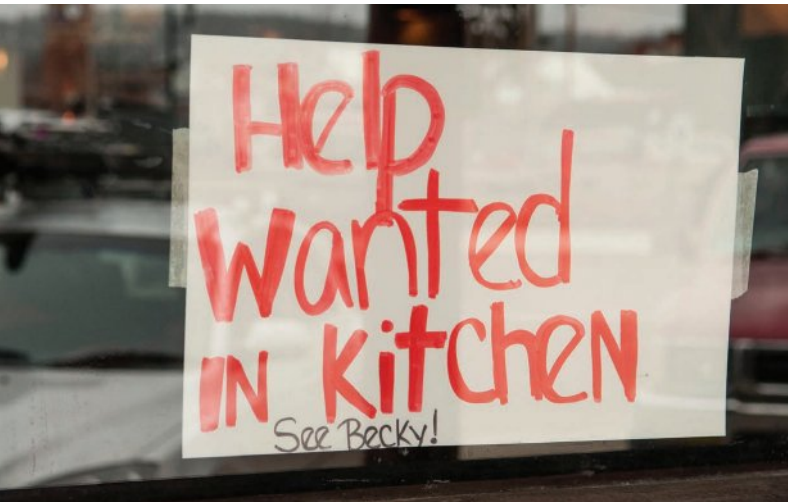 Help
Wanted
IN KitcheN
See Becky!